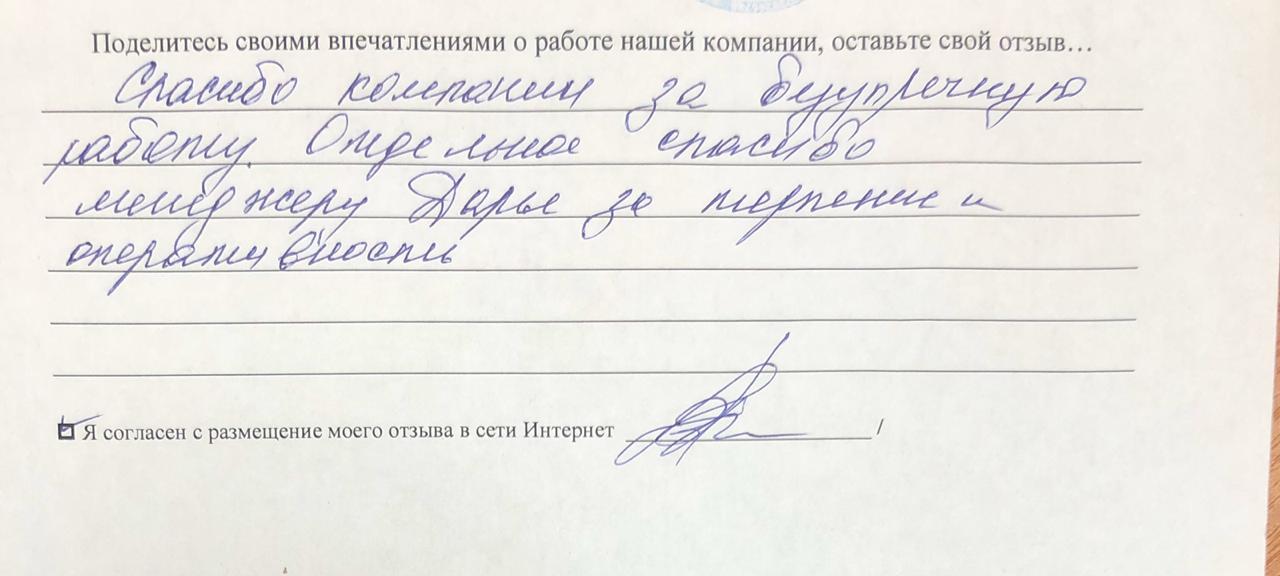 Поделитесь своими впечатлениями о работе нашей компании, оставьте свой отзыв…
Спасибо компании за безупречную
работу. Отдельное спасибо
менеджеру Дарье за терпение и
оперативность
Я согласен с размещение моего отзыва в сети Интернет /